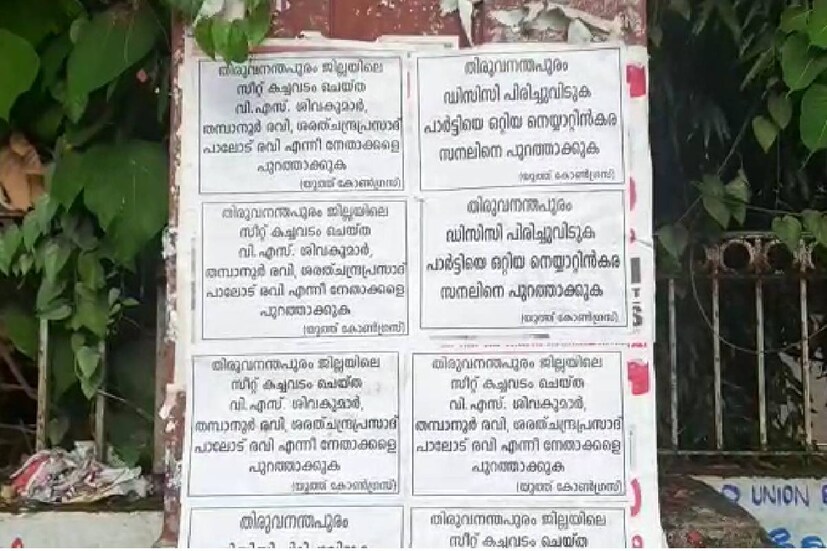 തിരുവനന്തപുരം ജില്ലയിലെ
സീറ്റ് കച്ചവടം ചെയ്ത
വി.എസ്. ശിവകുമാർ,
തമ്പാനൂർ രവി, ശരത്ചന്ദ്രപ്രസാദ്
പാലോട് രവി എന്നീ നേതാക്കളെ
പുറത്താക്കുക
(യൂത്ത് കോൺഗ്രസ്)
തിരുവനന്തപുരം
ഡിസിസി പിരിച്ചുവിടുക
പാർട്ടിയെ ഒറ്റിയ നെയ്യാറ്റിൻകര
സനലിനെ പുറത്താക്കുക
(യൂത്ത് കോൺഗ്രസ്)
തിരുവനന്തപുരം ജില്ലയിലെ
സീറ്റ് കച്ചവടം ചെയ്ത
വി.എസ്. ശിവകുമാർ,
തമ്പാനൂർ രവി, ശരത്ചന്ദ്രപ്രസാദ്
പാലോട് രവി എന്നീ നേതാക്കളെ
പുറത്താക്കുക
(യൂത്ത് കോൺഗ്രസ്)
തിരുവനന്തപുരം
ഡിസിസി പിരിച്ചുവിടുക
പാർട്ടിയെ ഒറ്റിയ നെയ്യാറ്റിൻകര
സനലിനെ പുറത്താക്കുക
(യൂത്ത് കോൺഗ്രസ്)
തിരുവനന്തപുരം ജില്ലയിലെ
സീറ്റ് കച്ചവടം ചെയ്ത
വി.എസ്. ശിവകുമാർ,
തമ്പാനൂർ രവി, ശരത്ചന്ദ്രപ്രസാദ്
പാലോട് രവി എന്നീ നേതാക്കളെ
പുറത്താക്കുക
(യൂത്ത് കോൺഗ്രസ്)
തിരുവനന്തപുരം ജില്ലയിലെ
സീറ്റ് കച്ചവടം ചെയ്ത
വി.എസ്. ശിവകുമാർ,
തമ്പാനൂർ രവി, ശരത്ചന്ദ്രപ്രസാദ്
പാലോട് രവി എന്നീ നേതാക്കളെ
പുറത്താക്കുക
(യൂത്ത് കോൺഗ്രസ്)
തിരുവനന്തപുരം
തിരുവനന്തപുരം ജില്ലയിലെ
സീറ്റ് കച്ചവടം ചെയ്ത
UNION